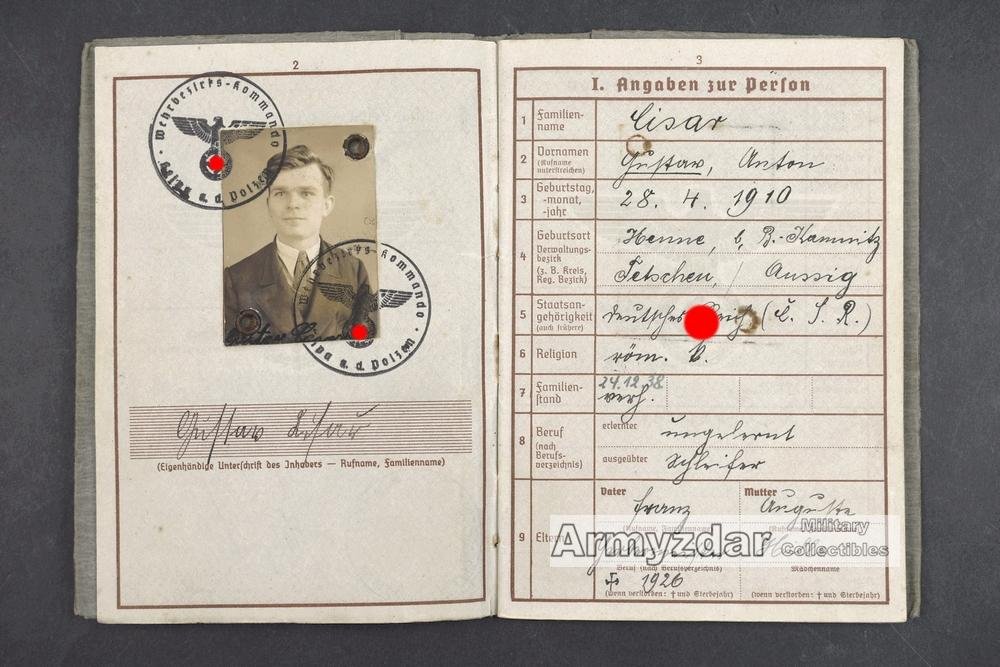 2
Wehrbezirks-Kommando
Leipa a. d. Polzen
Wehrbezirks-Kommando
Leipa a. d. Polzen
Gustav Cisar
(Eigenhändige Unterschrift des Inhabers — Rufname, Familienname)
3
I. Angaben zur Person
1 Familien-
name
Cisar
2 Vornamen
(Rufname
unterstreichen)
Gustav, Anton
3 Geburtstag,
-monat,
-jahr
28. 4. 1910
4 Geburtsort
Verwaltungs-
bezirk
(z. B. Kreis,
Reg. Bezirk)
Henne, b. B.-Kamnitz
Tetschen, / Aussig
5 Staatsan-
gehörigkeit
(auch frühere)
deutsches Reich (Č. S. R.)
6 Religion
röm. k.
7 Familien-
stand
24.12.38
verh.
8 Beruf
(nach
Berufs-
verzeichnis)
erlernter ungelernt
ausgeübter Schleifer
9 Eltern
Vater
Franz
(Rufname, Familienname)
Beruf (nach Berufsverzeichnis)
† 1926
(wenn verstorben: † und Sterbejahr)
Mutter
Auguste
Mädchenname
(wenn verstorben: † und Sterbejahr)
Armyzdar
Military
Collectibles